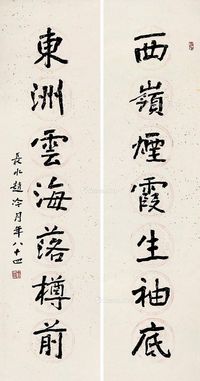 西嶺煙霞生袖底
東洲雲海落樽前
長水趙冷月年八十四